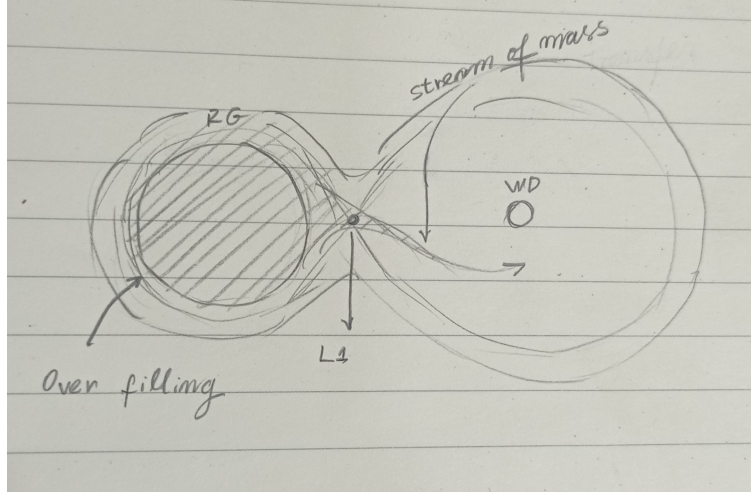 stream of mass
RG
WD
L1
Over filling